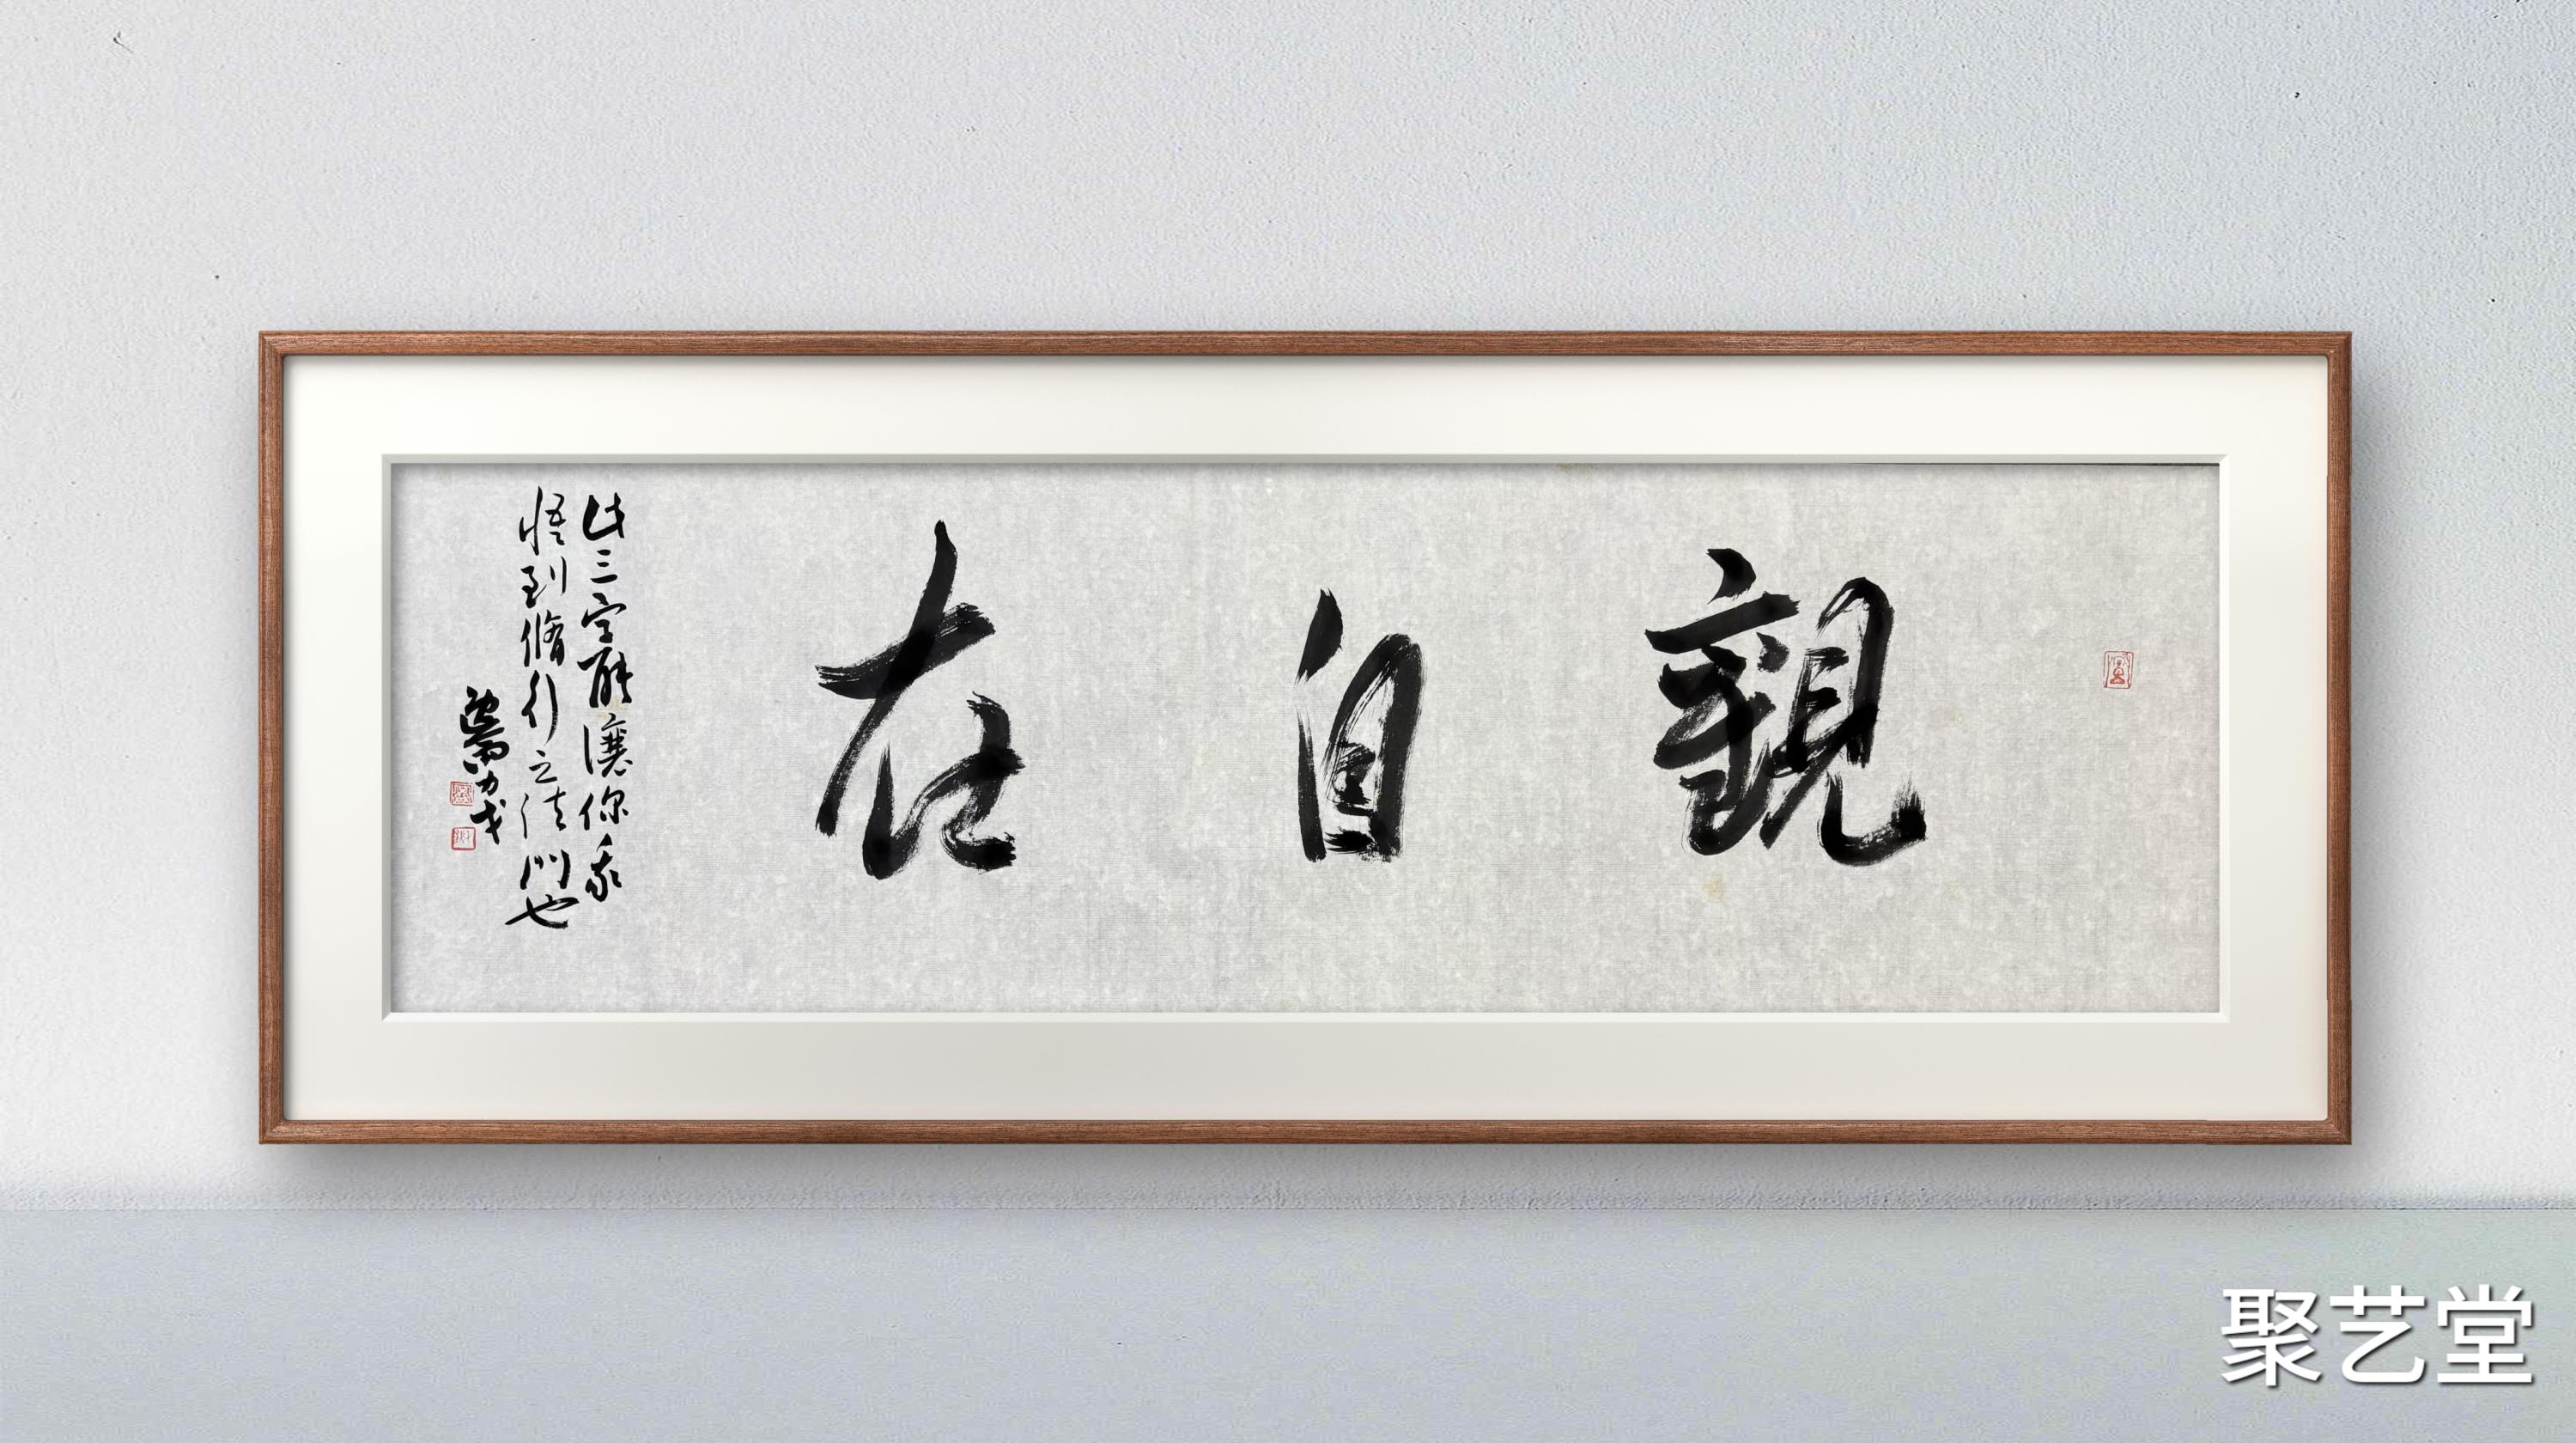 觀自在
此三字能讓你我
悟到脩行之法門也
聚艺堂